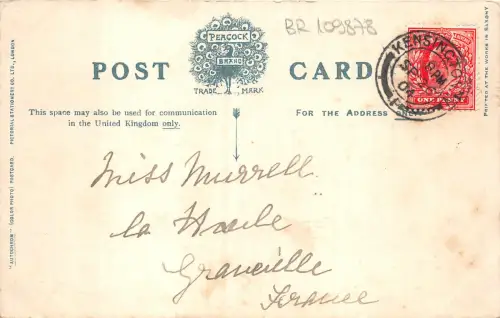 BR 109878
PEACOCK
BRAND
TRADE MARK
POST CARD
KENSINGTON
04
ONE PENNY
This space may also be used for communication
in the United Kingdom only.
FOR THE ADDRESS ONLY
Miss Murrell
La Haule
Granville
France
"AUTOCHROM" (COLOR PHOTO) POSTCARD. PICTORIAL STATIONERY CO. LTD., LONDON
PRINTED AT THE WORKS IN SAXONY